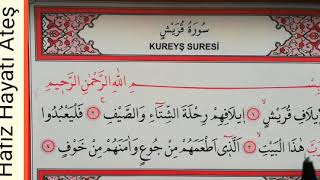 سُورَةُ قُرَيْشٍ
KUREYŞ SURESİ
بِسْمِ اللهِ الرَّحْمٰنِ الرَّحِيمِ
يلَافِ قُرَيْشٍۙ ﴿١﴾ اٖيلَافِهِمْ رِحْلَةَ الشِّتَٓاءِ وَالصَّيْفِۚ ﴿٢﴾ فَلْيَعْبُدُوا
هٰذَا الْبَيْتِۙ ﴿٣﴾ اَلَّذٖٓى اَطْعَمَهُمْ مِنْ جُوعٍ وَاٰمَنَهُمْ مِنْ خَوْفٍ ﴿٤﴾
Hafız Hayatı Ateş